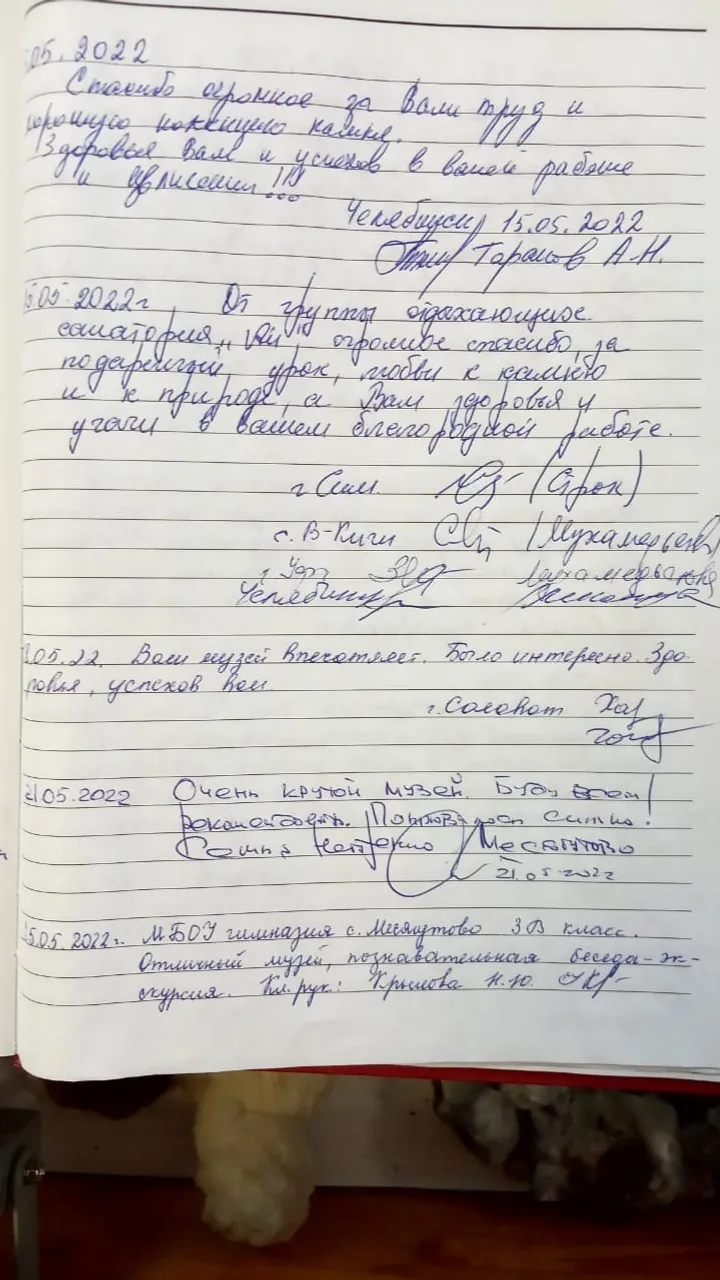 .05.2022
Спасибо огромное за Ваш труд и
хорошую
Здоровья Вам и успехов в вашей работе
и
Челябинск 15.05.2022
Таранов А.Н.
5.05.2022г От группы отдыхающих
санатория „Ай" огромное спасибо за
подаренный урок, любви к камню
и к природе, а Вам здоровья и
удачи в вашем благородной работе.
г. Сим.
с. В-Киги
г. Уфа
Челябинск
.05.22. Ваш музей впечатляет. Было интересно. Здо-
ровья, успехов вам.
г. Салават
21.05.2022 Очень крутой музей. Буду всем
рекомендовать.
Месягутово
21.05.2022
5.05.2022г. МБОУ гимназия с. Месягутово 3В класс.
Отличный музей, познавательная беседа-эк-
скурсия. Кл.рук: Крылова Н.Ю.